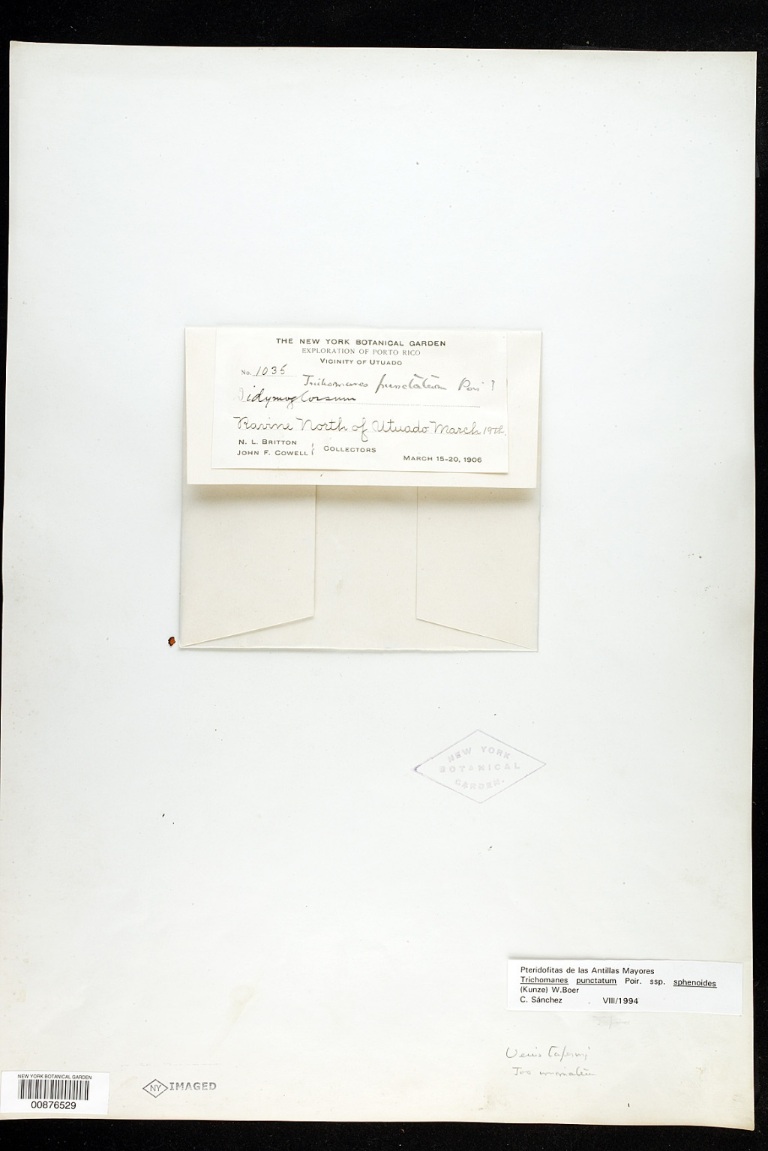 THE NEW YORK BOTANICAL GARDEN
EXPLORATION OF PORTO RICO
VICINITY OF UTUADO
No. 1035 Trichomanes punctatum Poir ?
Didymoglossum
Ravine North of Utuado March 19th
N. L. BRITTON
JOHN F. COWELL } COLLECTORS
MARCH 15-20, 1906
NEW YORK
BOTANICAL
GARDEN.
Pteridofitas de las Antillas Mayores
Trichomanes punctatum Poir. ssp. sphenoides
(Kunze) W.Boer
C. Sánchez VIII/1994
NEW YORK BOTANICAL GARDEN
00876529
NY IMAGED